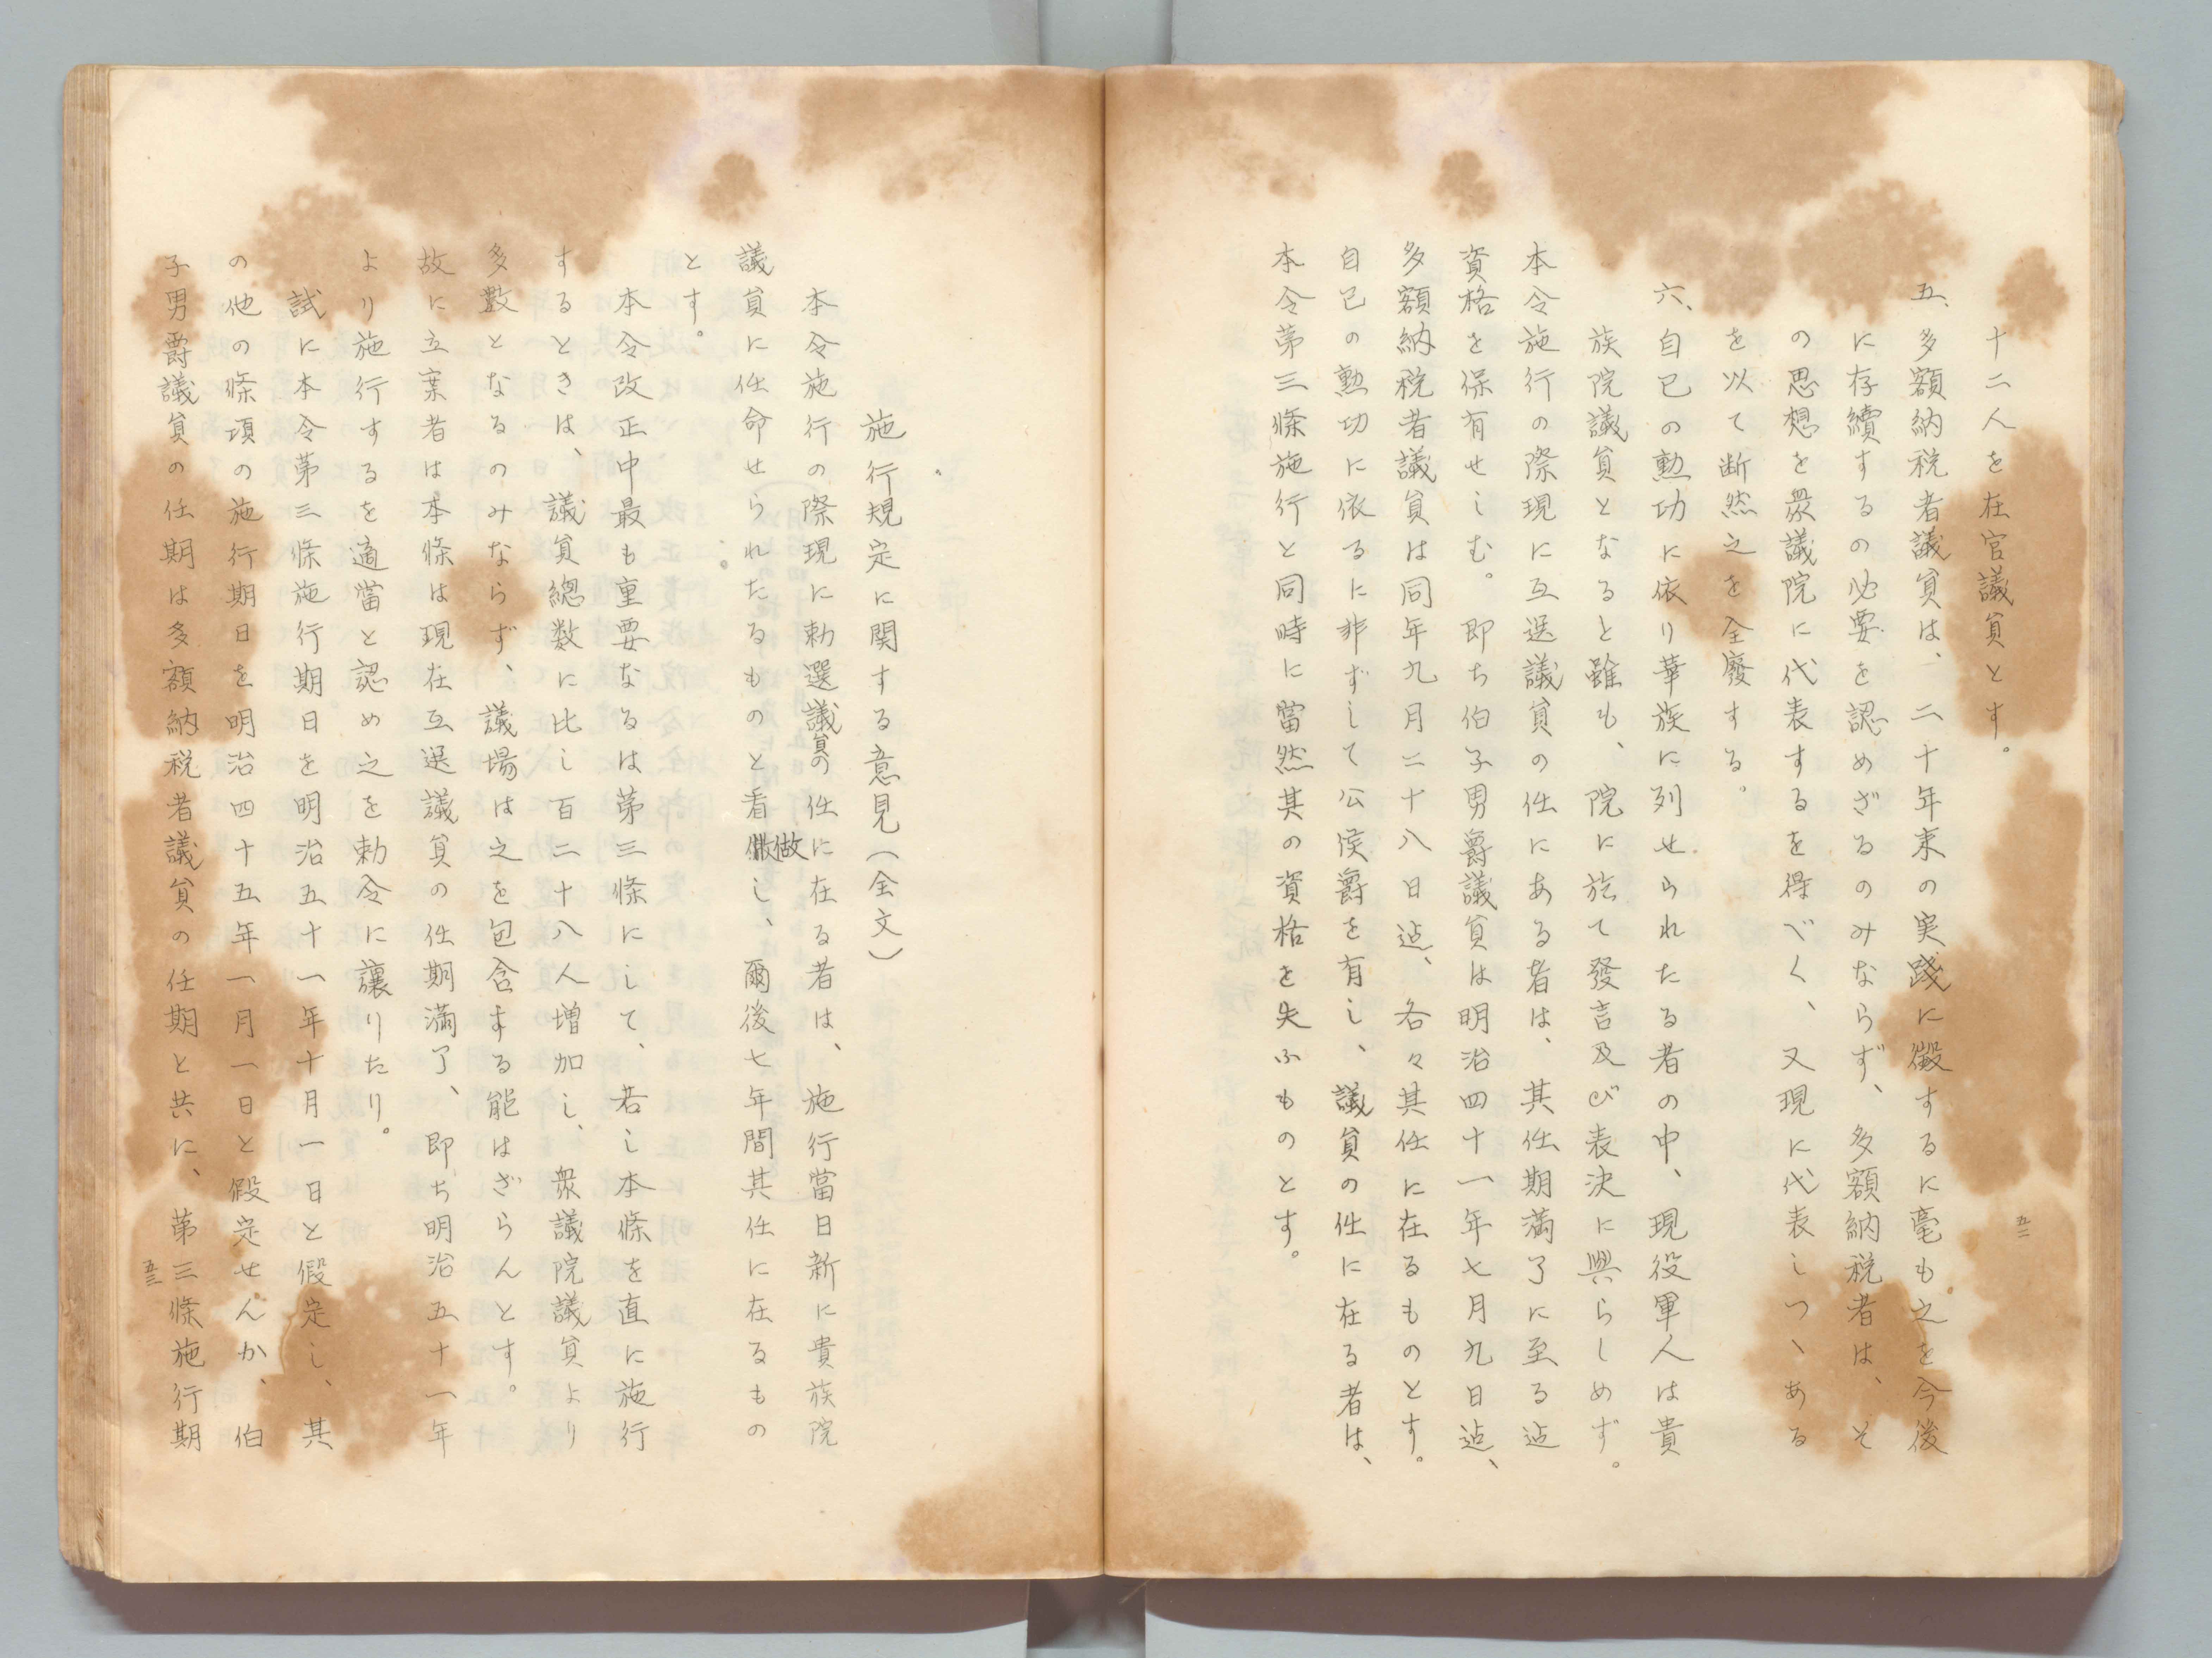 十二人を在官議員とす。
五、多額納税者議員は、二十年来の実踐に徴するに毫も之を今後
に存續するの必要を認めざるのみならず、多額納税者は、そ
の思想を衆議院に代表するを得べく、又現に代表しつゝある
を以て断然之を全廢する。
六、自己の勲功に依り華族に列せられたる者の中、現役軍人は貴
族院議員となると雖も、院に於て發言及び表決に與らしめず。
本令施行の際現に互选議員の任にある者は、其任期満了に至る迠
資格を保有せしむ。即ち伯子男爵議員は明治四十一年七月九日迠、
多額納税者議員は同年九月二十八日迠、各々其任に在るものとす。
自己の勲功に依るに非ずして公侯爵を有し、議員の任に在る者は、
本令第三條施行と同時に當然其の資格を失ふものとす。
五二
施行規定に関する意見(全文)
本令施行の際現に勅選議員の任に在る者は、施行當日新に貴族院
議員に任命せられたるものと看做し、爾後七年間其任に在るもの
とす。
本令改正中最も重要なるは第三條にして、若し本條を直に施行
するときは、議員總数に比し百二十八人増加し、衆議院議員より
多數となるのみならず、議場は之を包含する能はざらんとす。
故に立案者は本條は現在互选議員の任期満了、即ち明治五十一年
より施行するを適當と認め之を勅令に讓りたり。
試に本令第三條施行期日を明治五十一年十月一日と假定し、其
の他の條項の施行期日を明治四十五年一月一日と假定せんか、伯
子男爵議員の任期は多額納税者議員の任期と共に、第三條施行期
五三